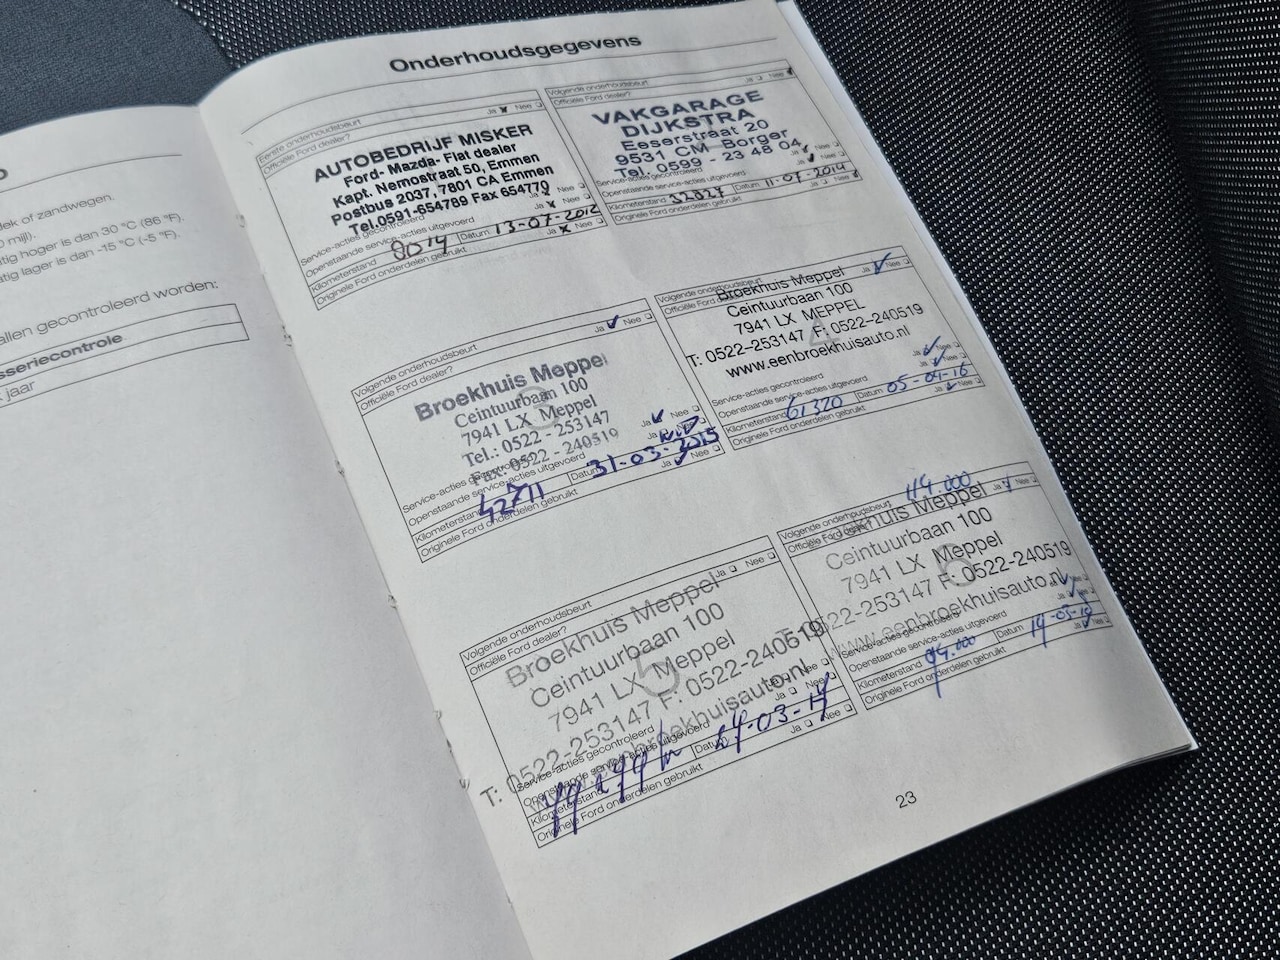 lek of zandwegen.
0 mijl).
tig hoger is dan 30 °C (86 °F).
atig lager is dan -15 °C (-5 °F).
allen gecontroleerd worden:
sseriecontrole
jaar
Onderhoudsgegevens
Eerste onderhoudsbeurt
Officiële Ford dealer? Ja Nee
AUTOBEDRIJF MISKER
Ford- Mazda- Fiat dealer
Kapt. Nemostraat 50, Emmen
Postbus 2037, 7801 CA Emmen
Tel.0591-654789 Fax 654770
Service-acties gecontroleerd Ja Nee
Openstaande service-acties uitgevoerd Ja Nee
Kilometerstand Datum 13-07-2012
Originele Ford onderdelen gebruikt Ja Nee
Volgende onderhoudsbeurt
Officiële Ford dealer? Ja Nee
VAKGARAGE
DIJKSTRA
Eeserstraat 20
9531 CM Borger
Tel. 0599 - 23 48 04
Service-acties gecontroleerd Ja Nee
Openstaande service-acties uitgevoerd Ja Nee
Kilometerstand Datum 11-07-2014
Originele Ford onderdelen gebruikt Ja Nee
Volgende onderhoudsbeurt
Officiële Ford dealer? Ja Nee
Broekhuis Meppel
Ceintuurbaan 100
7941 LX Meppel
Tel.: 0522 - 253147
Fax: 0522 - 240519
Service-acties gecontroleerd Ja Nee
Openstaande service-acties uitgevoerd Ja Nee
Kilometerstand 42711 Datum 31-03-2015
Originele Ford onderdelen gebruikt Ja Nee
Volgende onderhoudsbeurt
Officiële Ford Ja Nee
Broekhuis Meppel
Ceintuurbaan 100
7941 LX MEPPEL
T: 0522-253147 F: 0522-240519
www.eenbroekhuisauto.nl
4
Service-acties gecontroleerd Ja Nee
Openstaande service-acties uitgevoerd Ja Nee
Kilometerstand 61320 Datum 05-04-16
Originele Ford onderdelen gebruikt Ja Nee
Volgende onderhoudsbeurt
Officiële Ford dealer? Ja Nee
Broekhuis Meppel
Ceintuurbaan 100
7941 LX Meppel
5
T: 0522-253147 F: 0522-240519
www.eenbroekhuisauto.nl
Service-acties gecontroleerd Ja Nee
Openstaande service-acties uitgevoerd Ja Nee
Kilometerstand Datum
Originele Ford onderdelen gebruikt Ja Nee
114.000
Volgende onderhoudsbeurt
Officiële Ford Ja Nee
Broekhuis Meppel
Ceintuurbaan 100
7941 LX Meppel
6
22-253147 F: 0522-240519
www.eenbroekhuisauto.nl
Service-acties gecontroleerd
Openstaande service-acties uitgevoerd Nee
Kilometerstand 94.000 Datum
Originele Ford onderdelen gebruikt Ja Nee
23